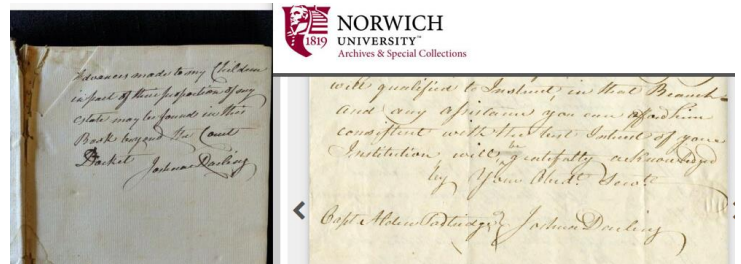 Advances made to my Children
in part of their proportion of my
estate may be found in this
Book beyond the Court
Docket
Joshua Darling
NORWICH
UNIVERSITY™
Archives & Special Collections
1819
will qualified to Instruct, in that Branch
and any assistance you can afford him
consistent with the best Interest of your
Institution will be gratefully acknowledged
by Your Obdt. Servt
Capt Alden Partridge } Joshua Darling